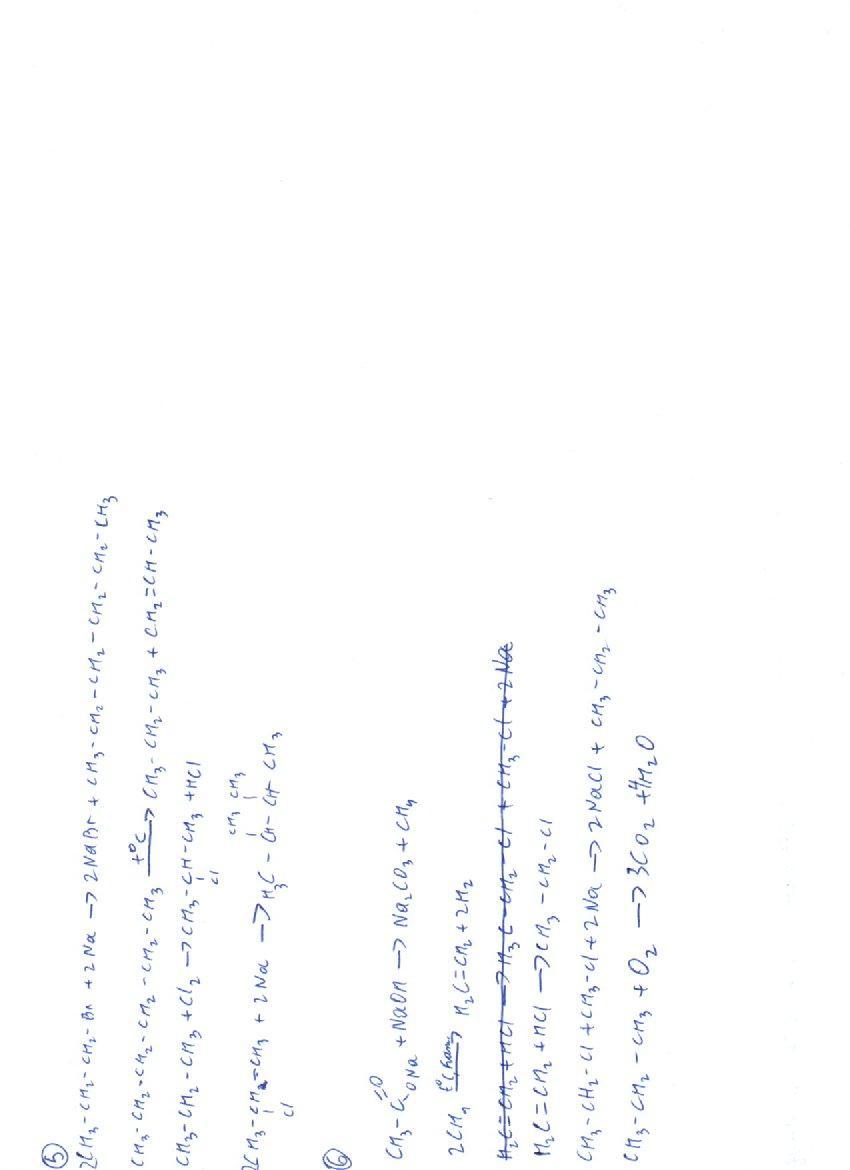 ⑤
2CH₃-CH₂-CH₂-Br + 2Na → 2NaBr + CH₃-CH₂-CH₂-CH₂-CH₂-CH₃
CH₃-CH₂-CH₂-CH₂-CH₂-CH₃ —t°C→ CH₃-CH₂-CH₃ + CH₂=CH-CH₃
CH₃-CH₂-CH₃ + Cl₂ → CH₃-CH-CH₃ + HCl
Cl
CH₃ CH₃
2CH₃-CH-CH₃ + 2Na → H₃C - CH - CH - CH₃
Cl
⑥
=O
CH₃-C + NaOH → Na₂CO₃ + CH₄
ONa
2CH₄ → H₂C=CH₂ + 2H₂
H₂C=CH₂ + HCl → H₃C-CH₂-Cl + CH₃-Cl + 2Na
H₂C=CH₂ + HCl → CH₃-CH₂-Cl
CH₃-CH₂-Cl + CH₃-Cl + 2Na → 2NaCl + CH₃-CH₂-CH₃
CH₃-CH₂-CH₃ + O₂ → 3CO₂ + 4H₂O